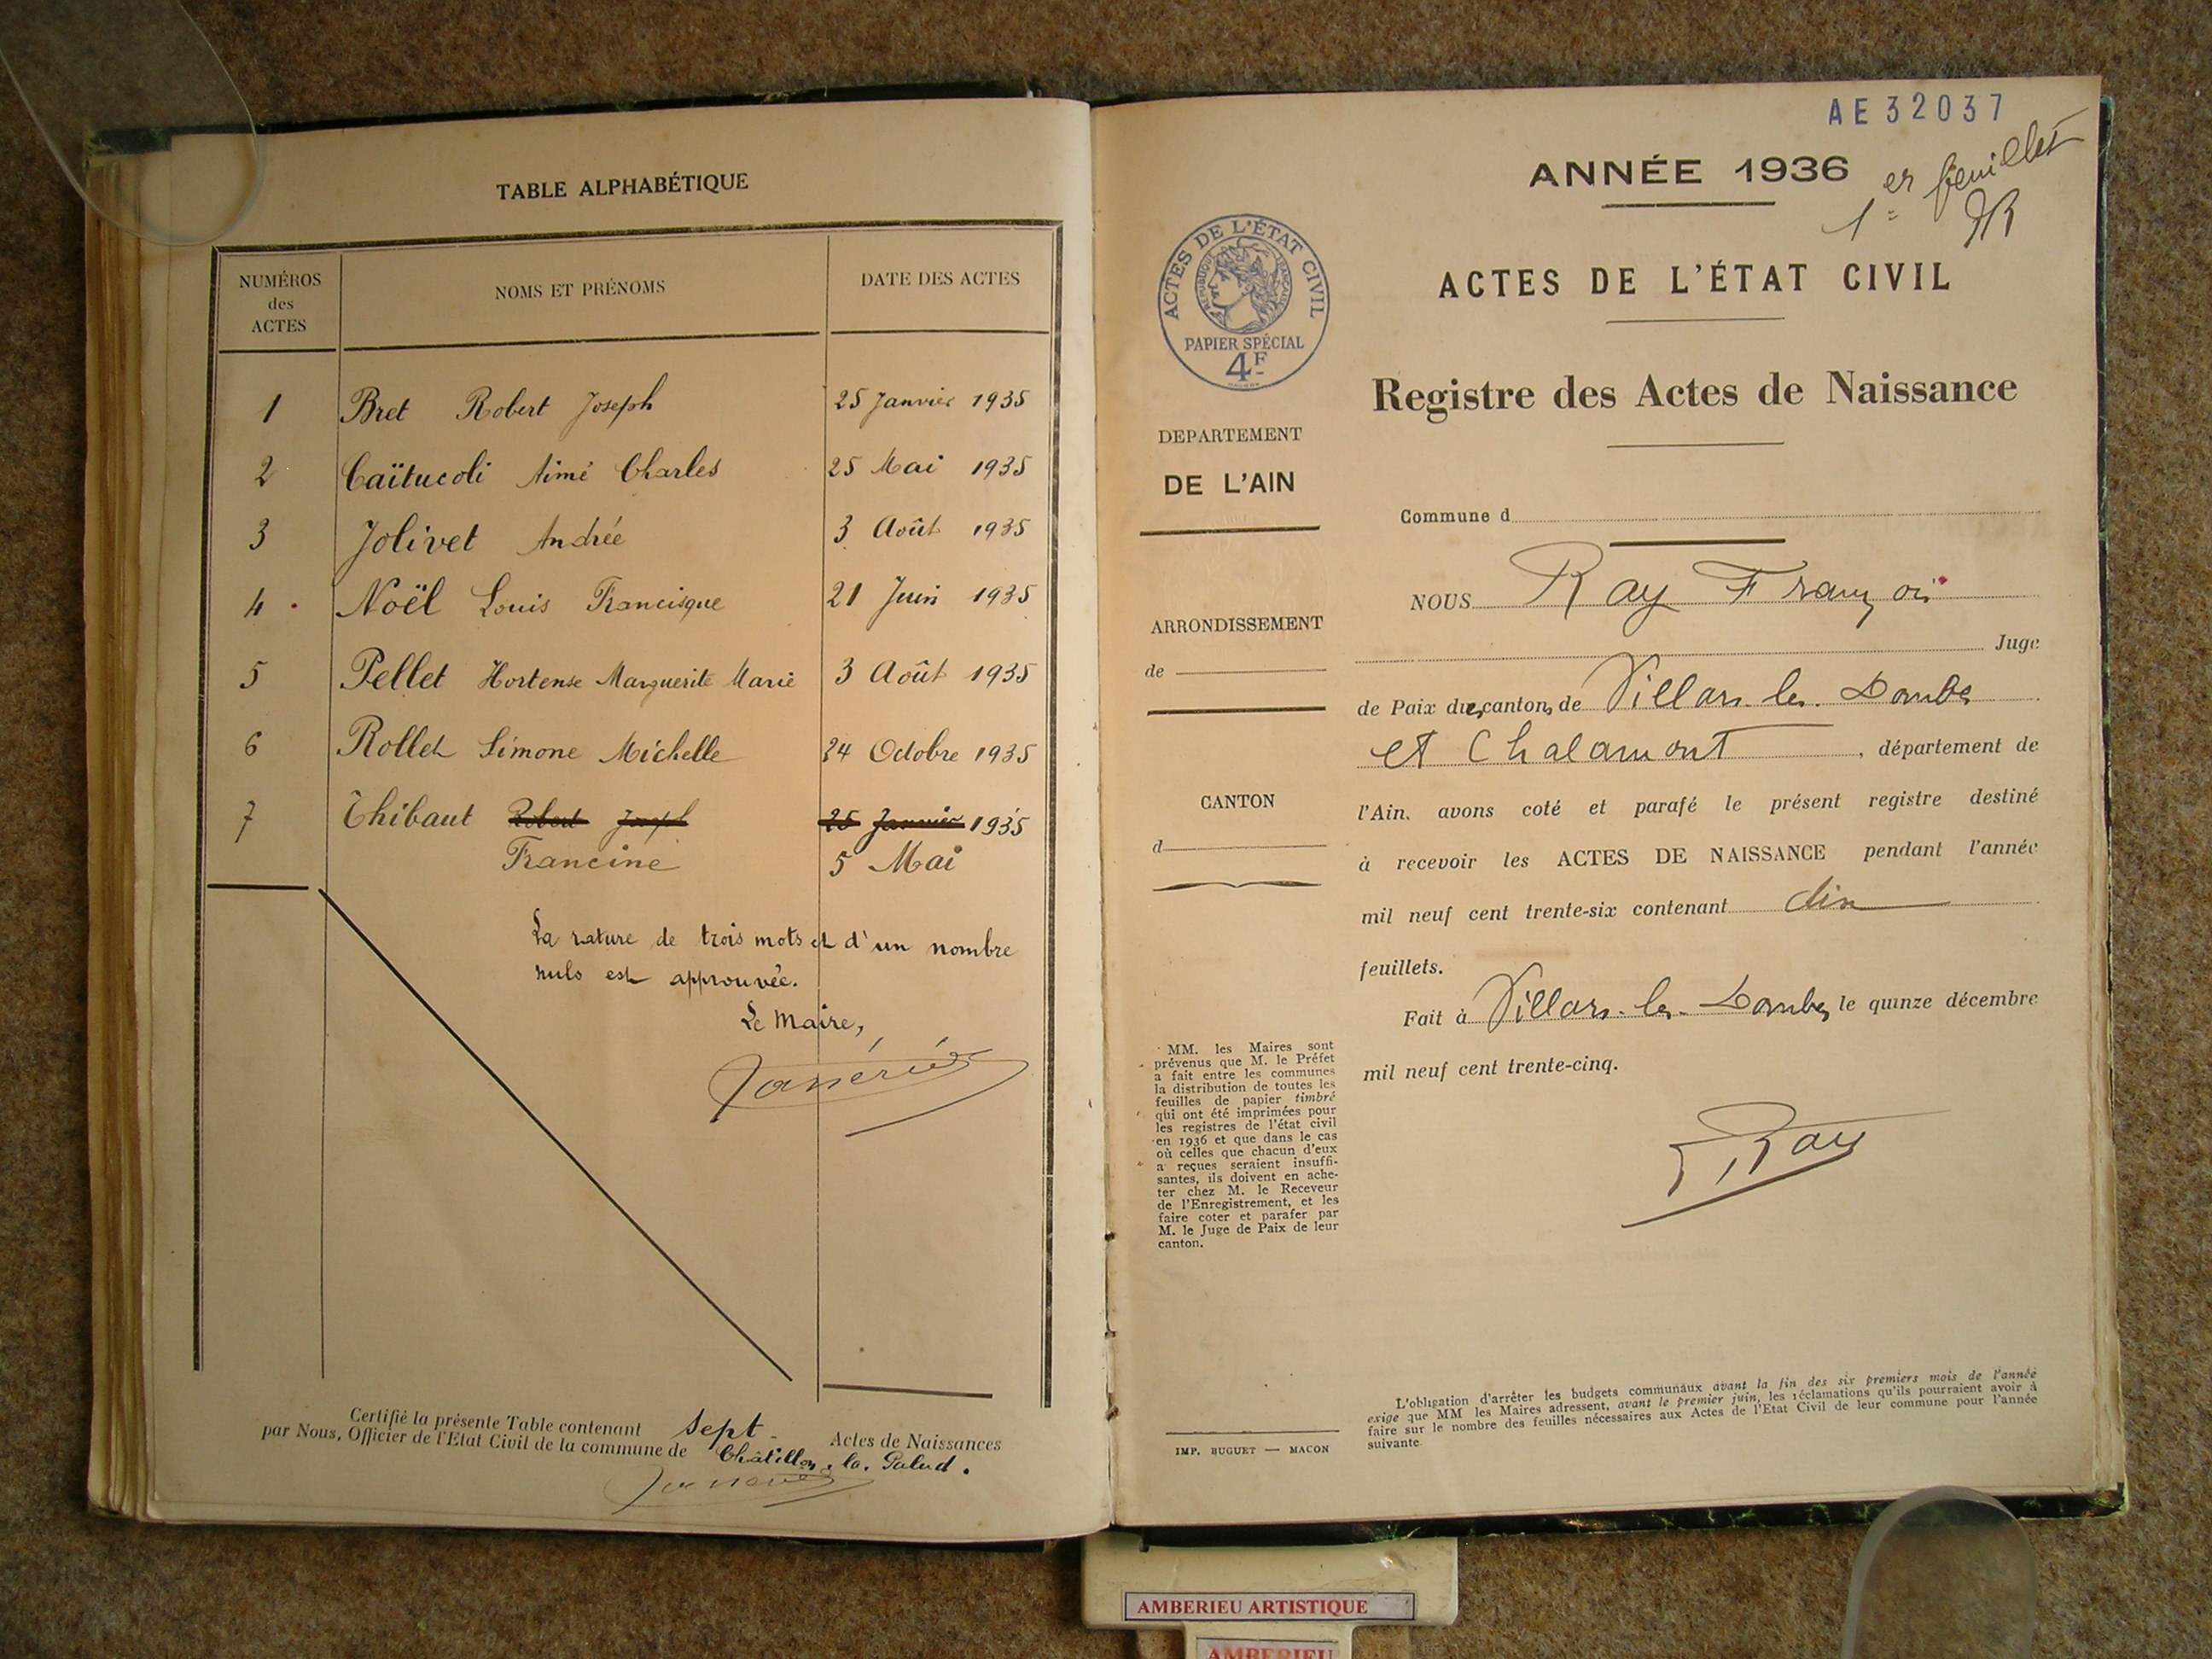 TABLE ALPHABÉTIQUE
NUMÉROS
des
ACTES
NOMS ET PRÉNOMS
DATE DES ACTES
1 Bret Robert Joseph 25 Janvier 1935
2 Caïtucoli Aimé Charles 25 Mai 1935
3 Jolivet Andrée 3 Août 1935
4 Noël Louis Francisque 21 Juin 1935
5 Pellet Hortense Marguerite Marie 3 Août 1935
6 Rollet Simone Michelle 24 Octobre 1935
7 Thibaut Robert Joseph 25 Janvier 1935
Francine 5 Mai
La rature de trois mots et d'un nombre
nuls est approuvée.
Le Maire,
Certifié la présente Table contenant sept Actes de Naissances
par Nous, Officier de l'Etat Civil de la commune de Châtillon. la. Palud.
AE32037
ANNÉE 1936
1er feuillet
ACTES DE L'ÉTAT CIVIL
ACTES DE L'ÉTAT CIVIL
RÉPUBLIQUE FRANÇAISE
PAPIER SPÉCIAL
4F
Registre des Actes de Naissance
DEPARTEMENT
DE L'AIN
ARRONDISSEMENT
de
CANTON
d
Commune d
NOUS Ray François
Juge
de Paix des cantons de Villars-les-Dombes
et Chalamont, département de
l'Ain, avons coté et parafé le présent registre destiné
à recevoir les ACTES DE NAISSANCE pendant l'année
mil neuf cent trente-six contenant dix
feuillets.
Fait à Villars-les-Dombes le quinze décembre
mil neuf cent trente-cinq.
Ray
MM. les Maires sont
prévenus que M. le Préfet
a fait entre les communes
la distribution de toutes les
feuilles de papier timbré
qui ont été imprimées pour
les registres de l'état civil
en 1936 et que dans le cas
où celles que chacun d'eux
a reçues seraient insuffi-
santes, ils doivent en ache-
ter chez M. le Receveur
de l'Enregistrement, et les
faire coter et parafer par
M. le Juge de Paix de leur
canton.
IMP. BUGUET — MACON
L'obligation d'arrêter les budgets communaux avant la fin des six premiers mois de l'année
exige que MM les Maires adressent, avant le premier juin, les réclamations qu'ils pourraient avoir à
faire sur le nombre des feuilles nécessaires aux Actes de l'Etat Civil de leur commune pour l'année
suivante.
AMBERIEU ARTISTIQUE
AMBERIEU